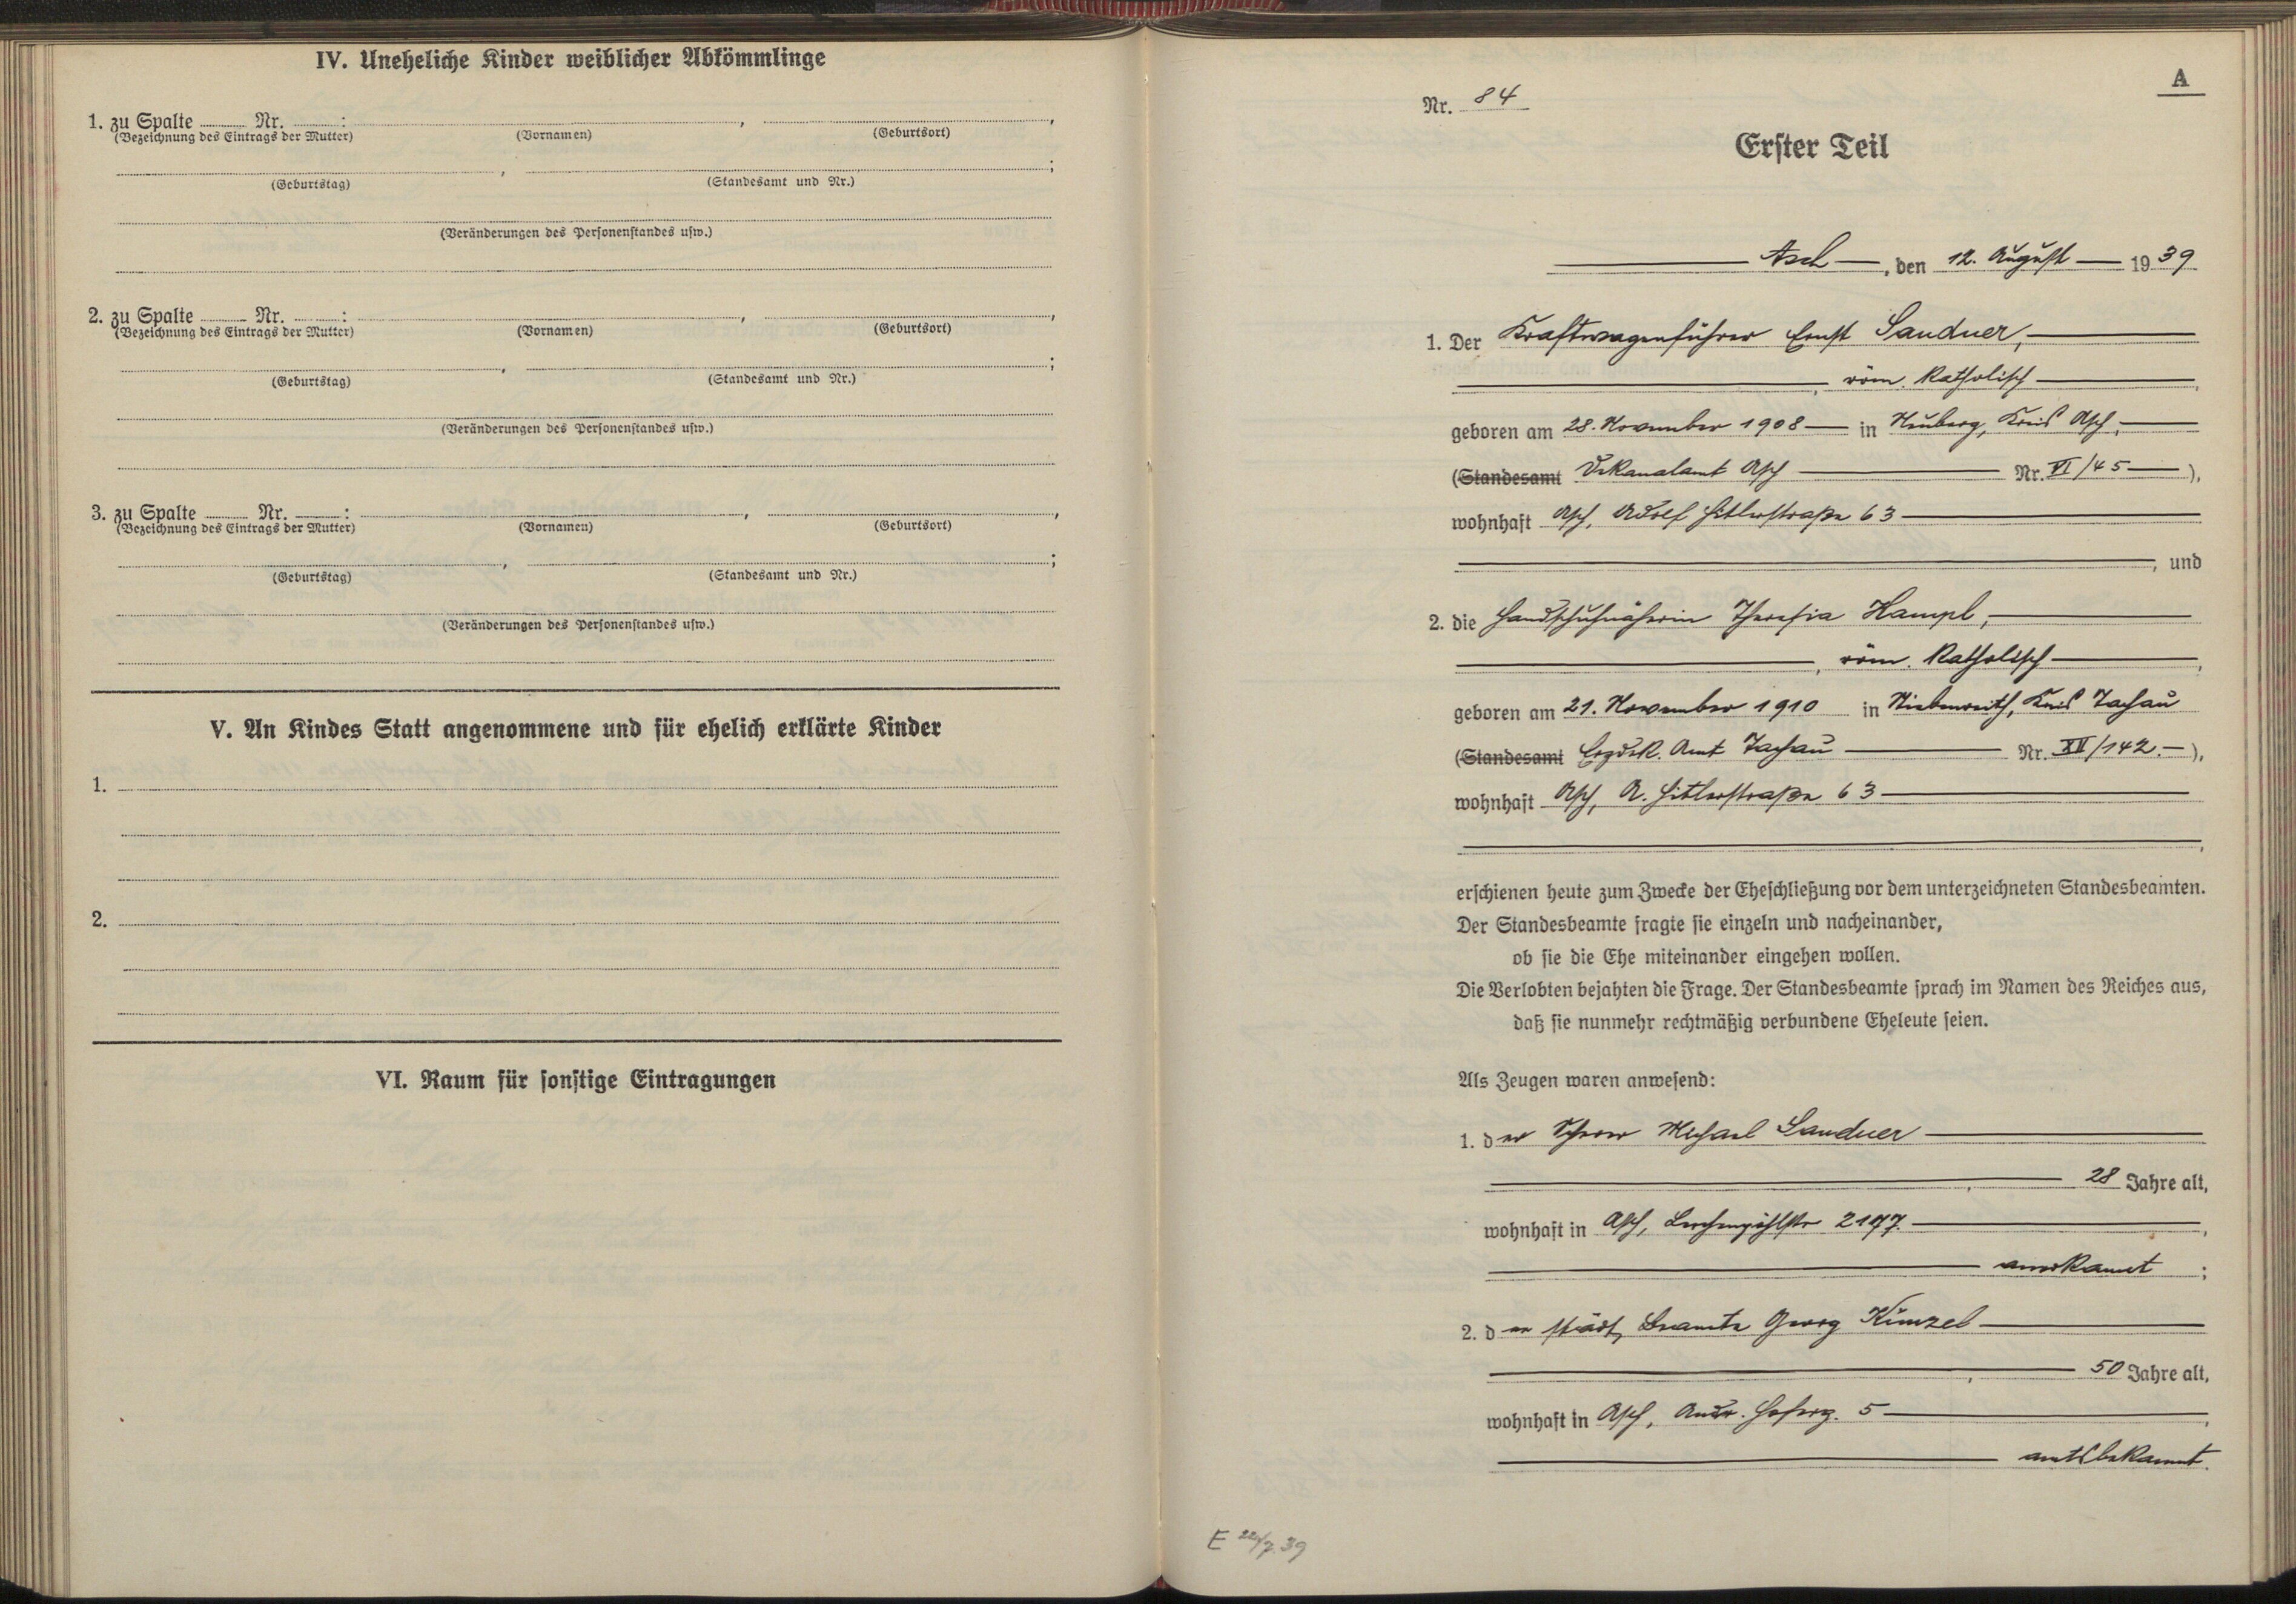 IV. Uneheliche Kinder weiblicher Abkömmlinge
1. zu Spalte ........ Nr. ........:
(Bezeichnung des Eintrags der Mutter) (Vornamen) , (Geburtsort) ,
(Geburtstag) , (Standesamt und Nr.) ;
(Veränderungen des Personenstandes usw.)
2. zu Spalte ........ Nr. ........:
(Bezeichnung des Eintrags der Mutter) (Vornamen) , (Geburtsort) ,
(Geburtstag) , (Standesamt und Nr.) ;
(Veränderungen des Personenstandes usw.)
3. zu Spalte ........ Nr. ........:
(Bezeichnung des Eintrags der Mutter) (Vornamen) , (Geburtsort) ,
(Geburtstag) , (Standesamt und Nr.) ;
(Veränderungen des Personenstandes usw.)
V. An Kindes Statt angenommene und für ehelich erklärte Kinder
1.
2.
VI. Raum für sonstige Eintragungen
A
Nr. 84
Erster Teil
Asch, den 12. August 1939
1. Der Kraftwagenführer Ernst Sandner,
, röm. katholisch,
geboren am 28. November 1908 in Neuberg, Kreis Asch,
(Standesamt Dekanalamt Asch Nr. VI/45),
wohnhaft Asch, Adolf Hitlerstraße 63
, und
2. die Handschuhnäherin Theresia Hampl,
, röm. katholisch,
geboren am 21. November 1910 in Kreis Tachau
(Standesamt Erzdek. Amt Tachau Nr. XII/142.),
wohnhaft Asch, A. Hitlerstraße 63
,
erschienen heute zum Zwecke der Eheschließung vor dem unterzeichneten Standesbeamten.
Der Standesbeamte fragte sie einzeln und nacheinander,
ob sie die Ehe miteinander eingehen wollen.
Die Verlobten bejahten die Frage. Der Standesbeamte sprach im Namen des Reiches aus,
daß sie nunmehr rechtmäßig verbundene Eheleute seien.
Als Zeugen waren anwesend:
1. der Michael Sandner
, 28 Jahre alt,
wohnhaft in Asch, Lerchenpöhlstr
anerkannt ;
2. der städt. Beamte Georg Künzel
, 50 Jahre alt,
wohnhaft in Asch, Andr. Hoferg. 5,
amtsbekannt.
E 22/7.39